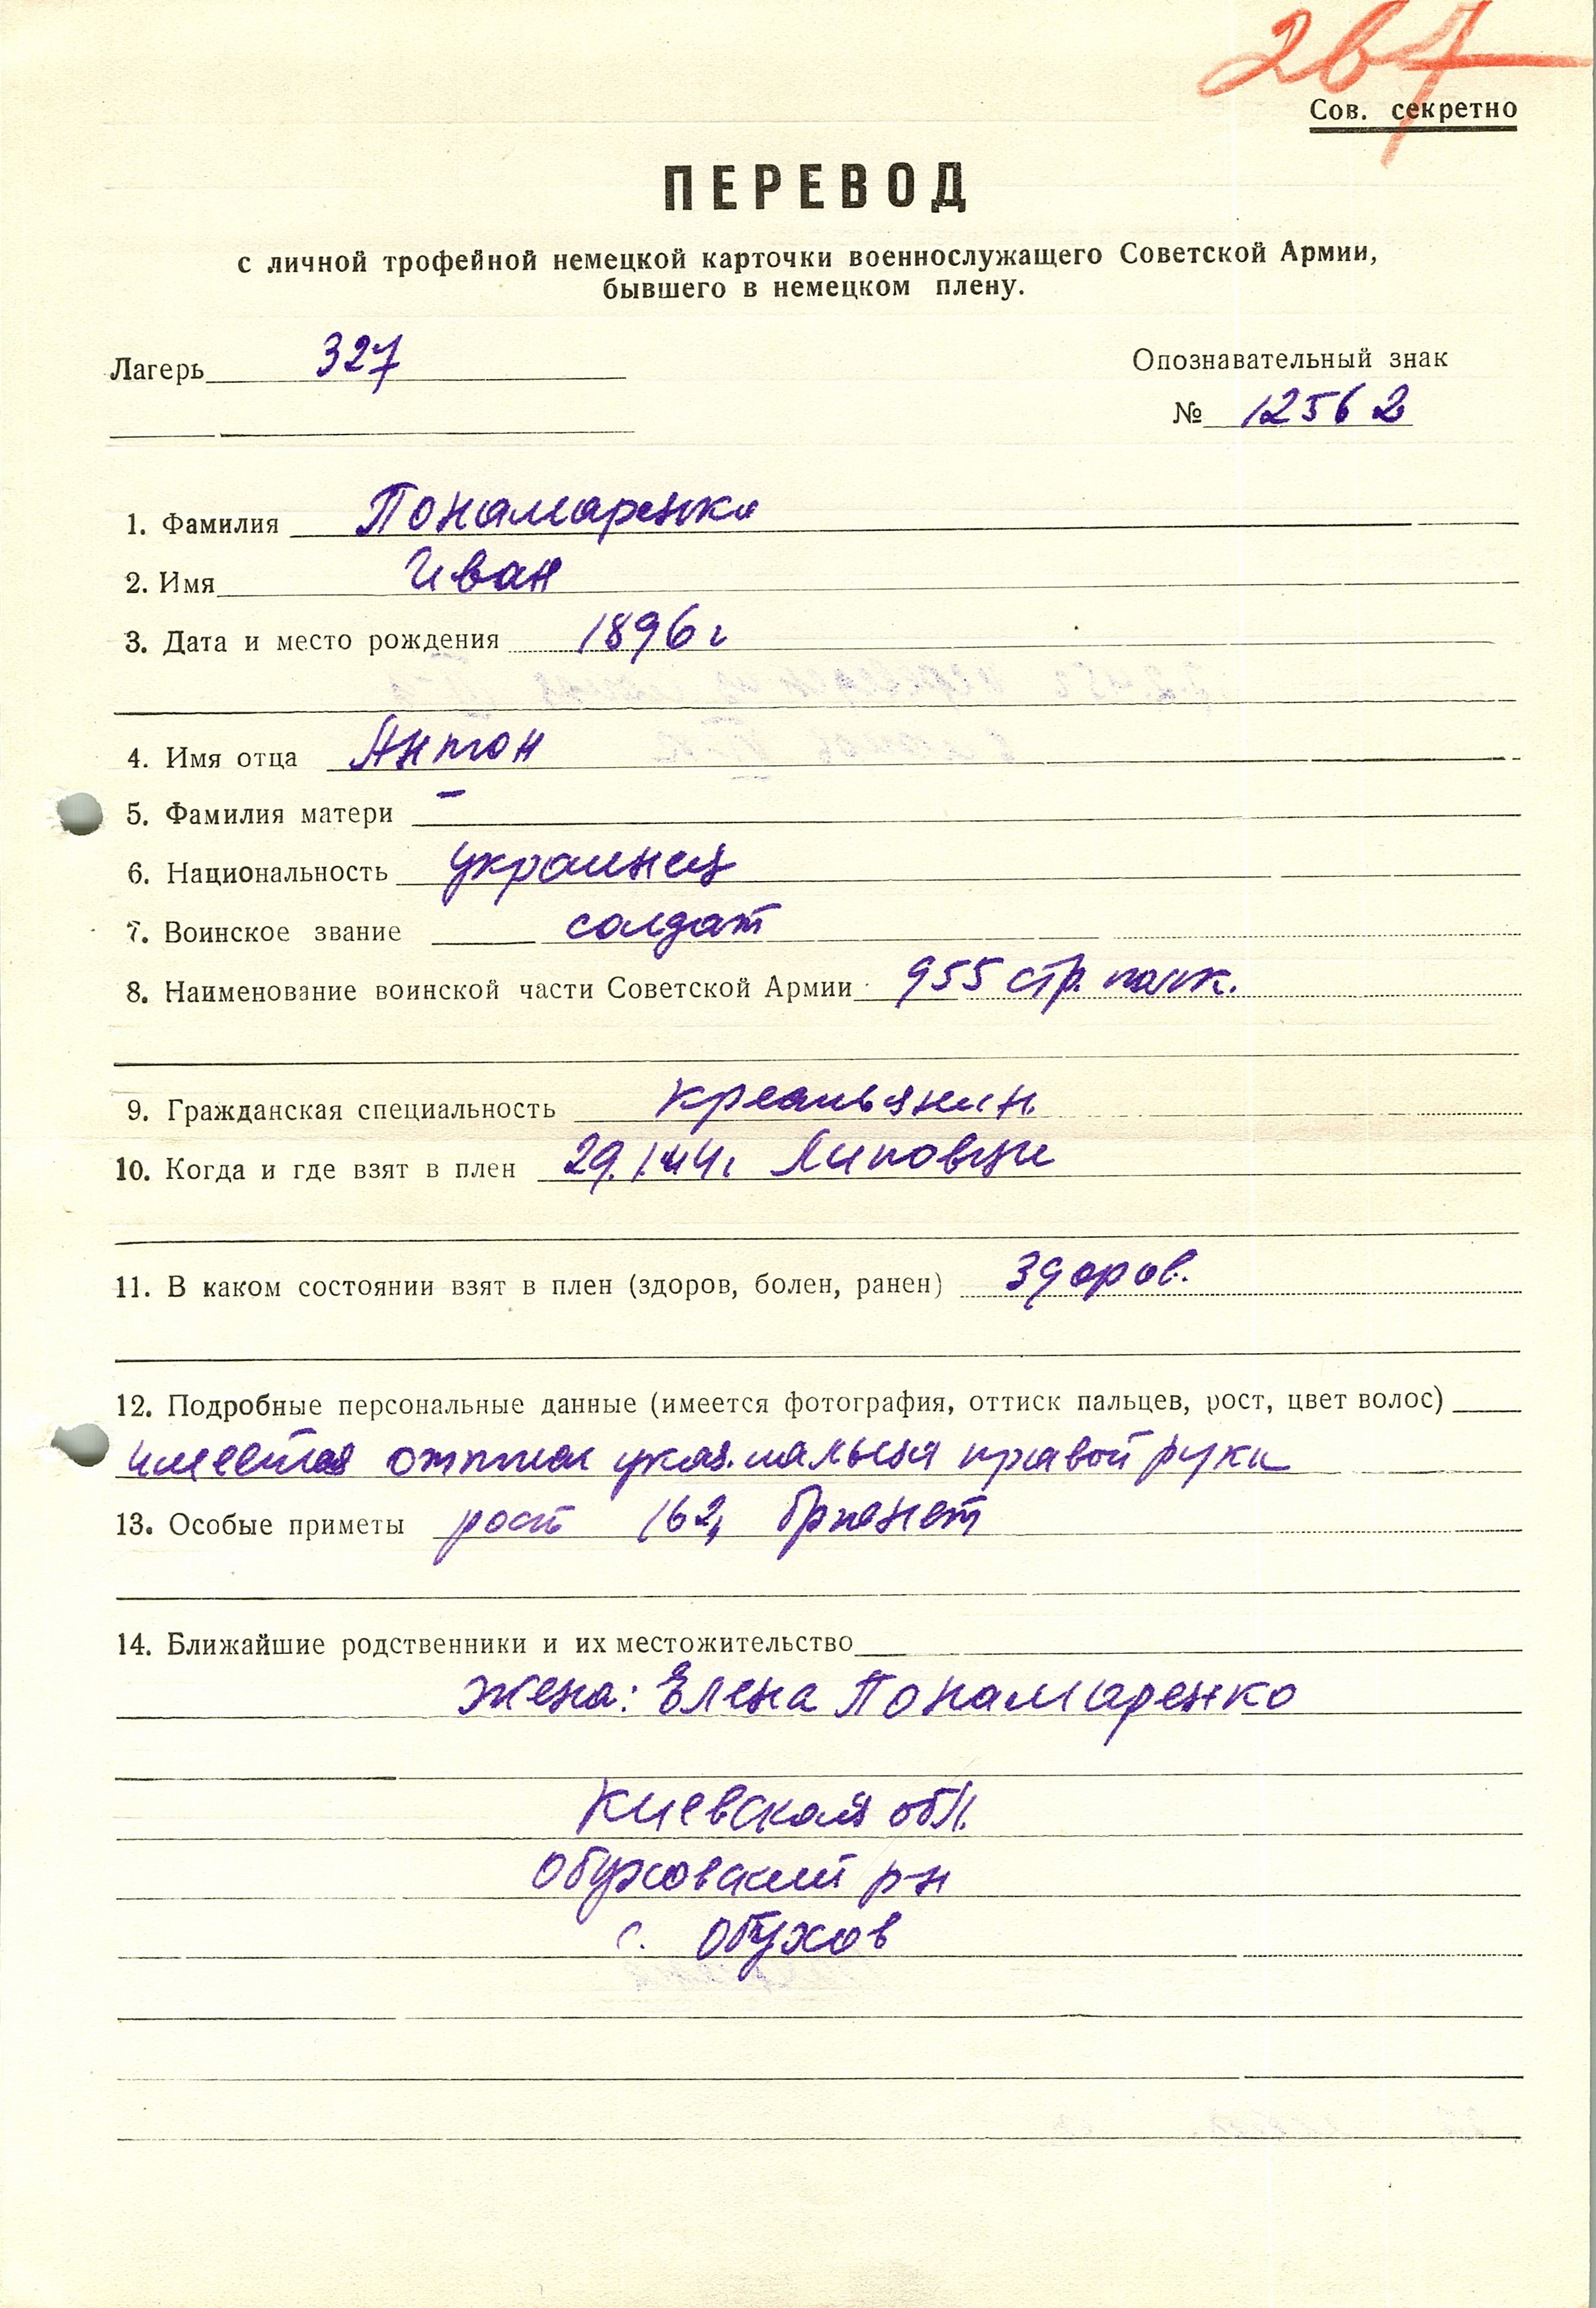 267
Сов. секретно
ПЕРЕВОД
с личной трофейной немецкой карточки военнослужащего Советской Армии,
бывшего в немецком плену.
Лагерь 327
Опознавательный знак
№ 12562
1. Фамилия Понамаренко
2. Имя Иван
3. Дата и место рождения 1896 г
4. Имя отца Антон
5. Фамилия матери –
6. Национальность украинец
7. Воинское звание солдат
8. Наименование воинской части Советской Армии 955 стр. полк.
9. Гражданская специальность крестьянин.
10. Когда и где взят в плен 29.1.44г Липовцы
11. В каком состоянии взят в плен (здоров, болен, ранен) здоров.
12. Подробные персональные данные (имеется фотография, оттиск пальцев, рост, цвет волос)
имеется оттиск указ. пальца правой руки
13. Особые приметы рост 162, брюнет
14. Ближайшие родственники и их местожительство
жена: Елена Понамаренко
Киевская обл.
Обуховский р-н
с. Обухов